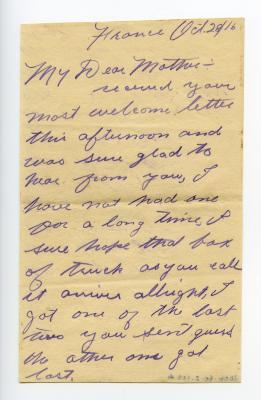 France Oct. 20/16
My Dear Mother:-
received your
most welcome letter
this afternoon and
was sure glad to
hear from you, I
have not had one
for a long time, I
sure hope that box
of truck as you call
it arives allright, I
got one of the last
two you sent, guess
the other one got
lost.